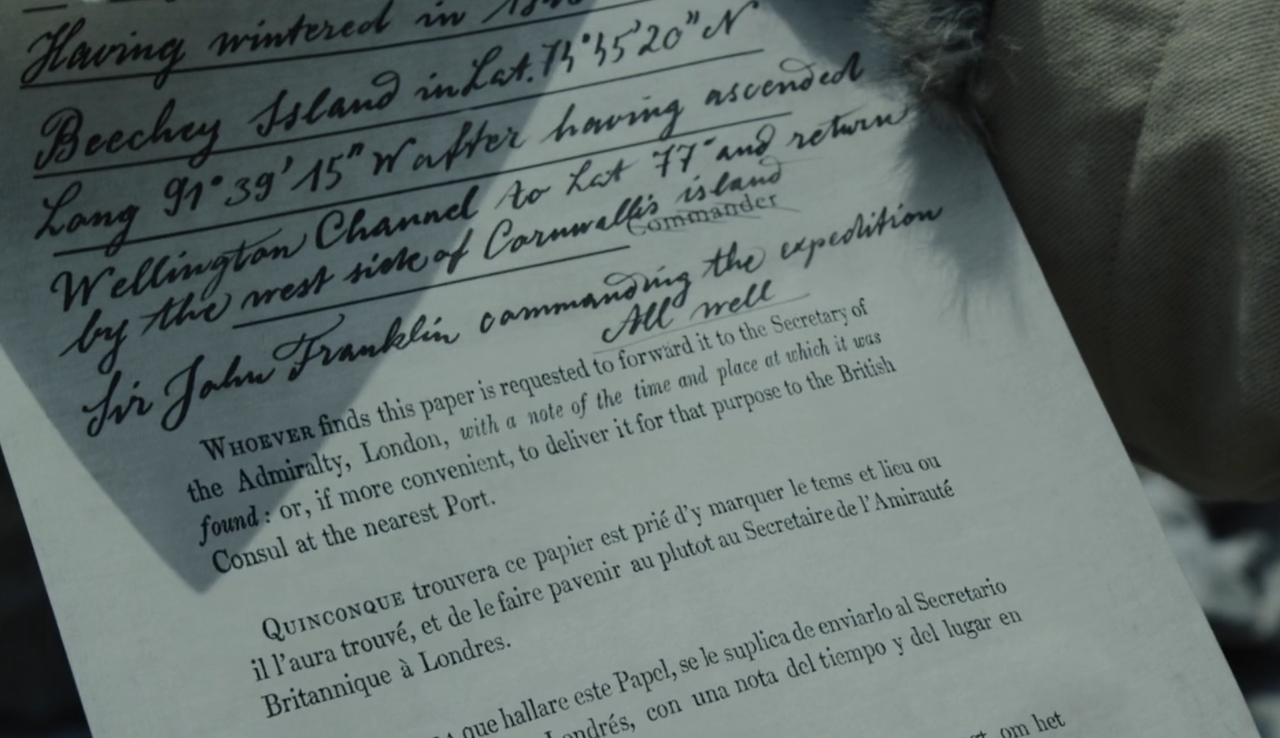 Having wintered in
Beechey Island in Lat. 74° 45' 20" N
Long 91° 39' 15" W after having ascended
Wellington Channel to Lat 77° and return
by the west side of Cornwallis island
Commander
Sir John Franklin commanding the expedition
All well
WHOEVER finds this paper is requested to forward it to the Secretary of
the Admiralty, London, with a note of the time and place at which it was
found: or, if more convenient, to deliver it for that purpose to the British
Consul at the nearest Port.
QUINCONQUE trouvera ce papier est prié d'y marquer le tems et lieu ou
il l'aura trouvé, et de le faire pavenir au plutot au Secretaire de l'Amirauté
Britannique à Londres.
que hallare este Papel, se le suplica de enviarlo al Secretario
Londrés, con una nota del tiempo y del lugar en
om het